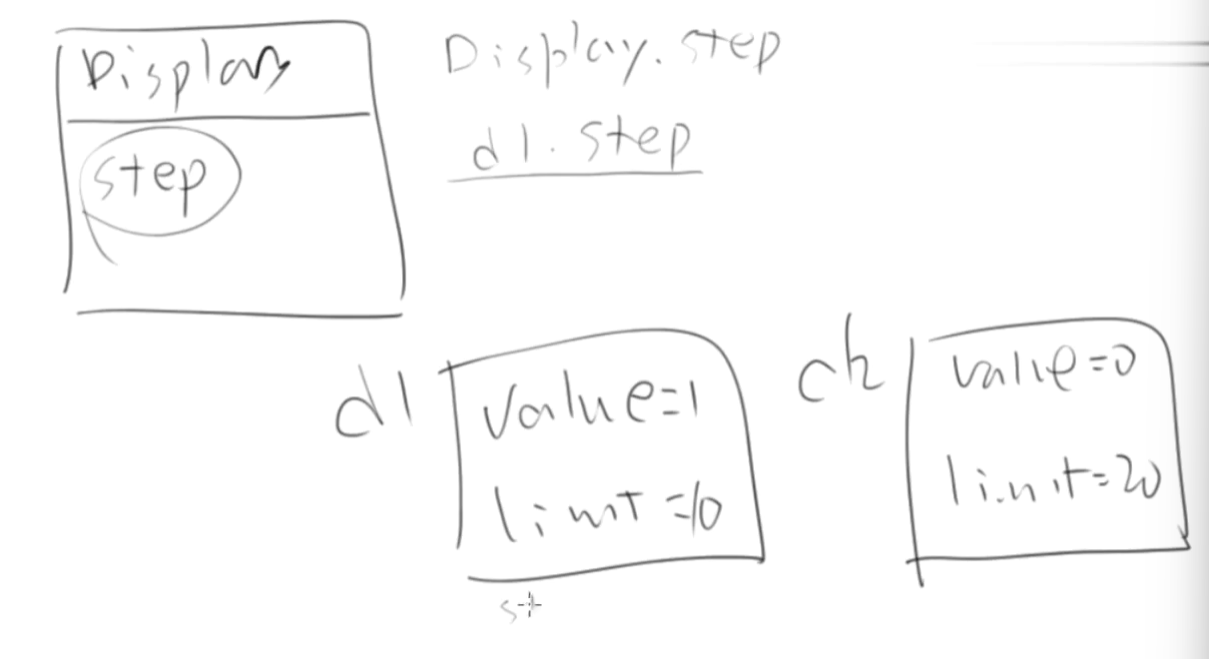 Display
Display.step
d1.step
step
d1
value=1
limit=10
d2
value=0
limit=20
st